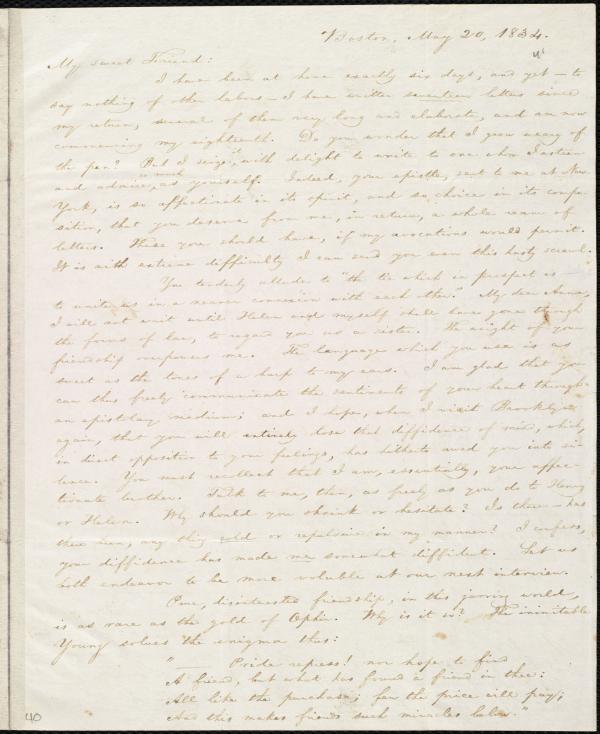 Boston, May 20, 1834.
My sweet Friend:
I have been at home exactly six days, and yet—to
say nothing of other labors—I have written seventeen letters since
my return, several of them very long and elaborate, and am now
commencing my eighteenth. Do you wonder that I grow weary of
the pen? But I seize it with delight to write to one whom I esteem
and admire, as much as yourself. Indeed, your epistle, sent to me at New
York, is so affectionate in its spirit, and so choice in its compo-
sition, that you deserve from me, in return, a whole ream of
letters. These you should have, if my avocations would permit.
It is with extreme difficulty I can send you even this hasty scrawl.
You tenderly allude to "the tie which in prospect is
to unite us in a nearer connexion with each other." My dear Anna,
I will not wait until Helen and myself shall have gone through
the forms of law, to regard you as a sister. The might of your
friendship overpowers me. The language which you use is as
sweet as the tones of a harp to my ears. I am glad that you
can thus freely communicate the sentiments of your heart through
an epistolary medium; and I hope, when I visit Brooklyn
again, that you will entirely lose that diffidence of mind, which,
in direct opposition to your feelings, has hitherto awed you into si-
lence. You must recollect that I am, essentially, your affec-
tionate brother. Talk to me, then, as freely as you do to Henry
or Helen. Why should you shrink or hesitate? Is there—has
there been, any thing cold or repulsive in my manner? I confess,
your diffidence has made me somewhat diffident. Let us
both endeavor to be more voluble at our next interview.
Pure, disinterested friendship, in this jarring world,
is as rare as the gold of Ophir. Why is it so? The inimitable
Young solves the enigma thus:
"— Pride repress! nor hope to find
A friend, but what has found a friend in thee:
All like the purchase; few the price will pay;
And this makes friends such miracles below."
40